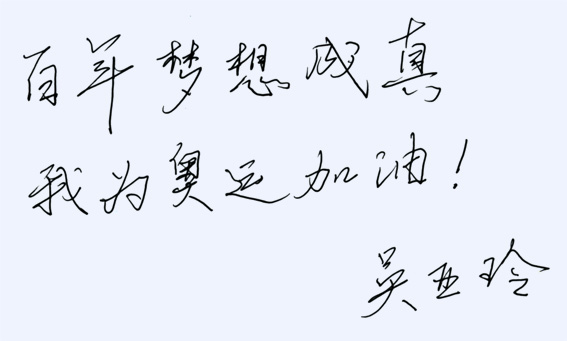 百年梦想成真
我为奥运加油！
吴亚玲